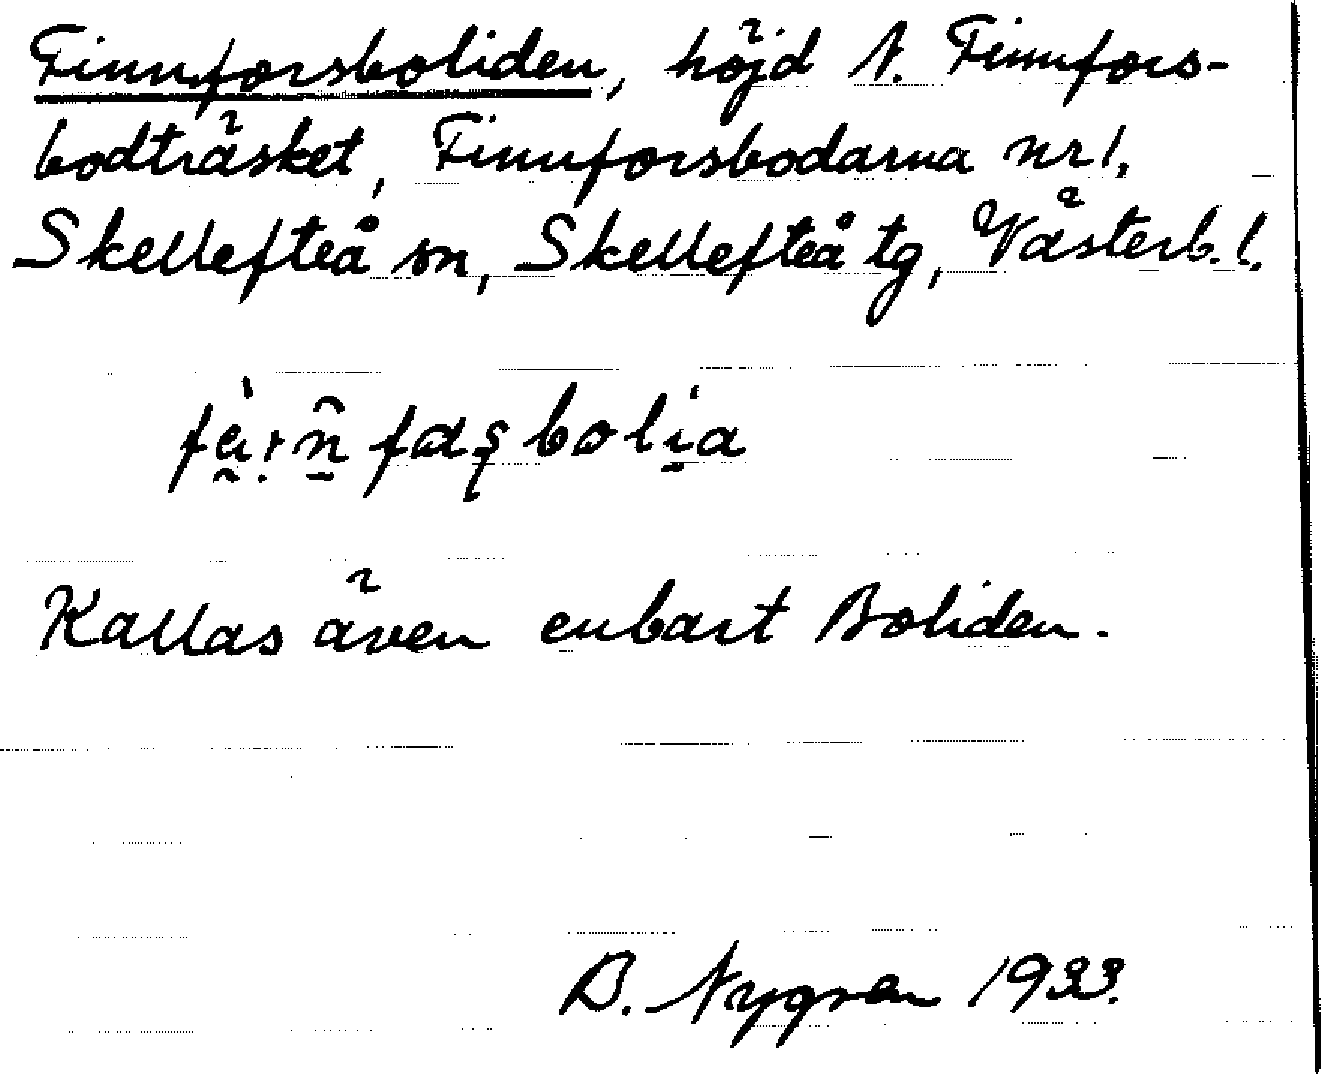 Finnforsboliden, höjd N. Finnfors-
bodträsket, Finnforsbodarna nr 1,
Skellefteå sn, Skellefteå tg, Västerb. l.
Kallas även enbart Boliden.
B. Nygren 1933.